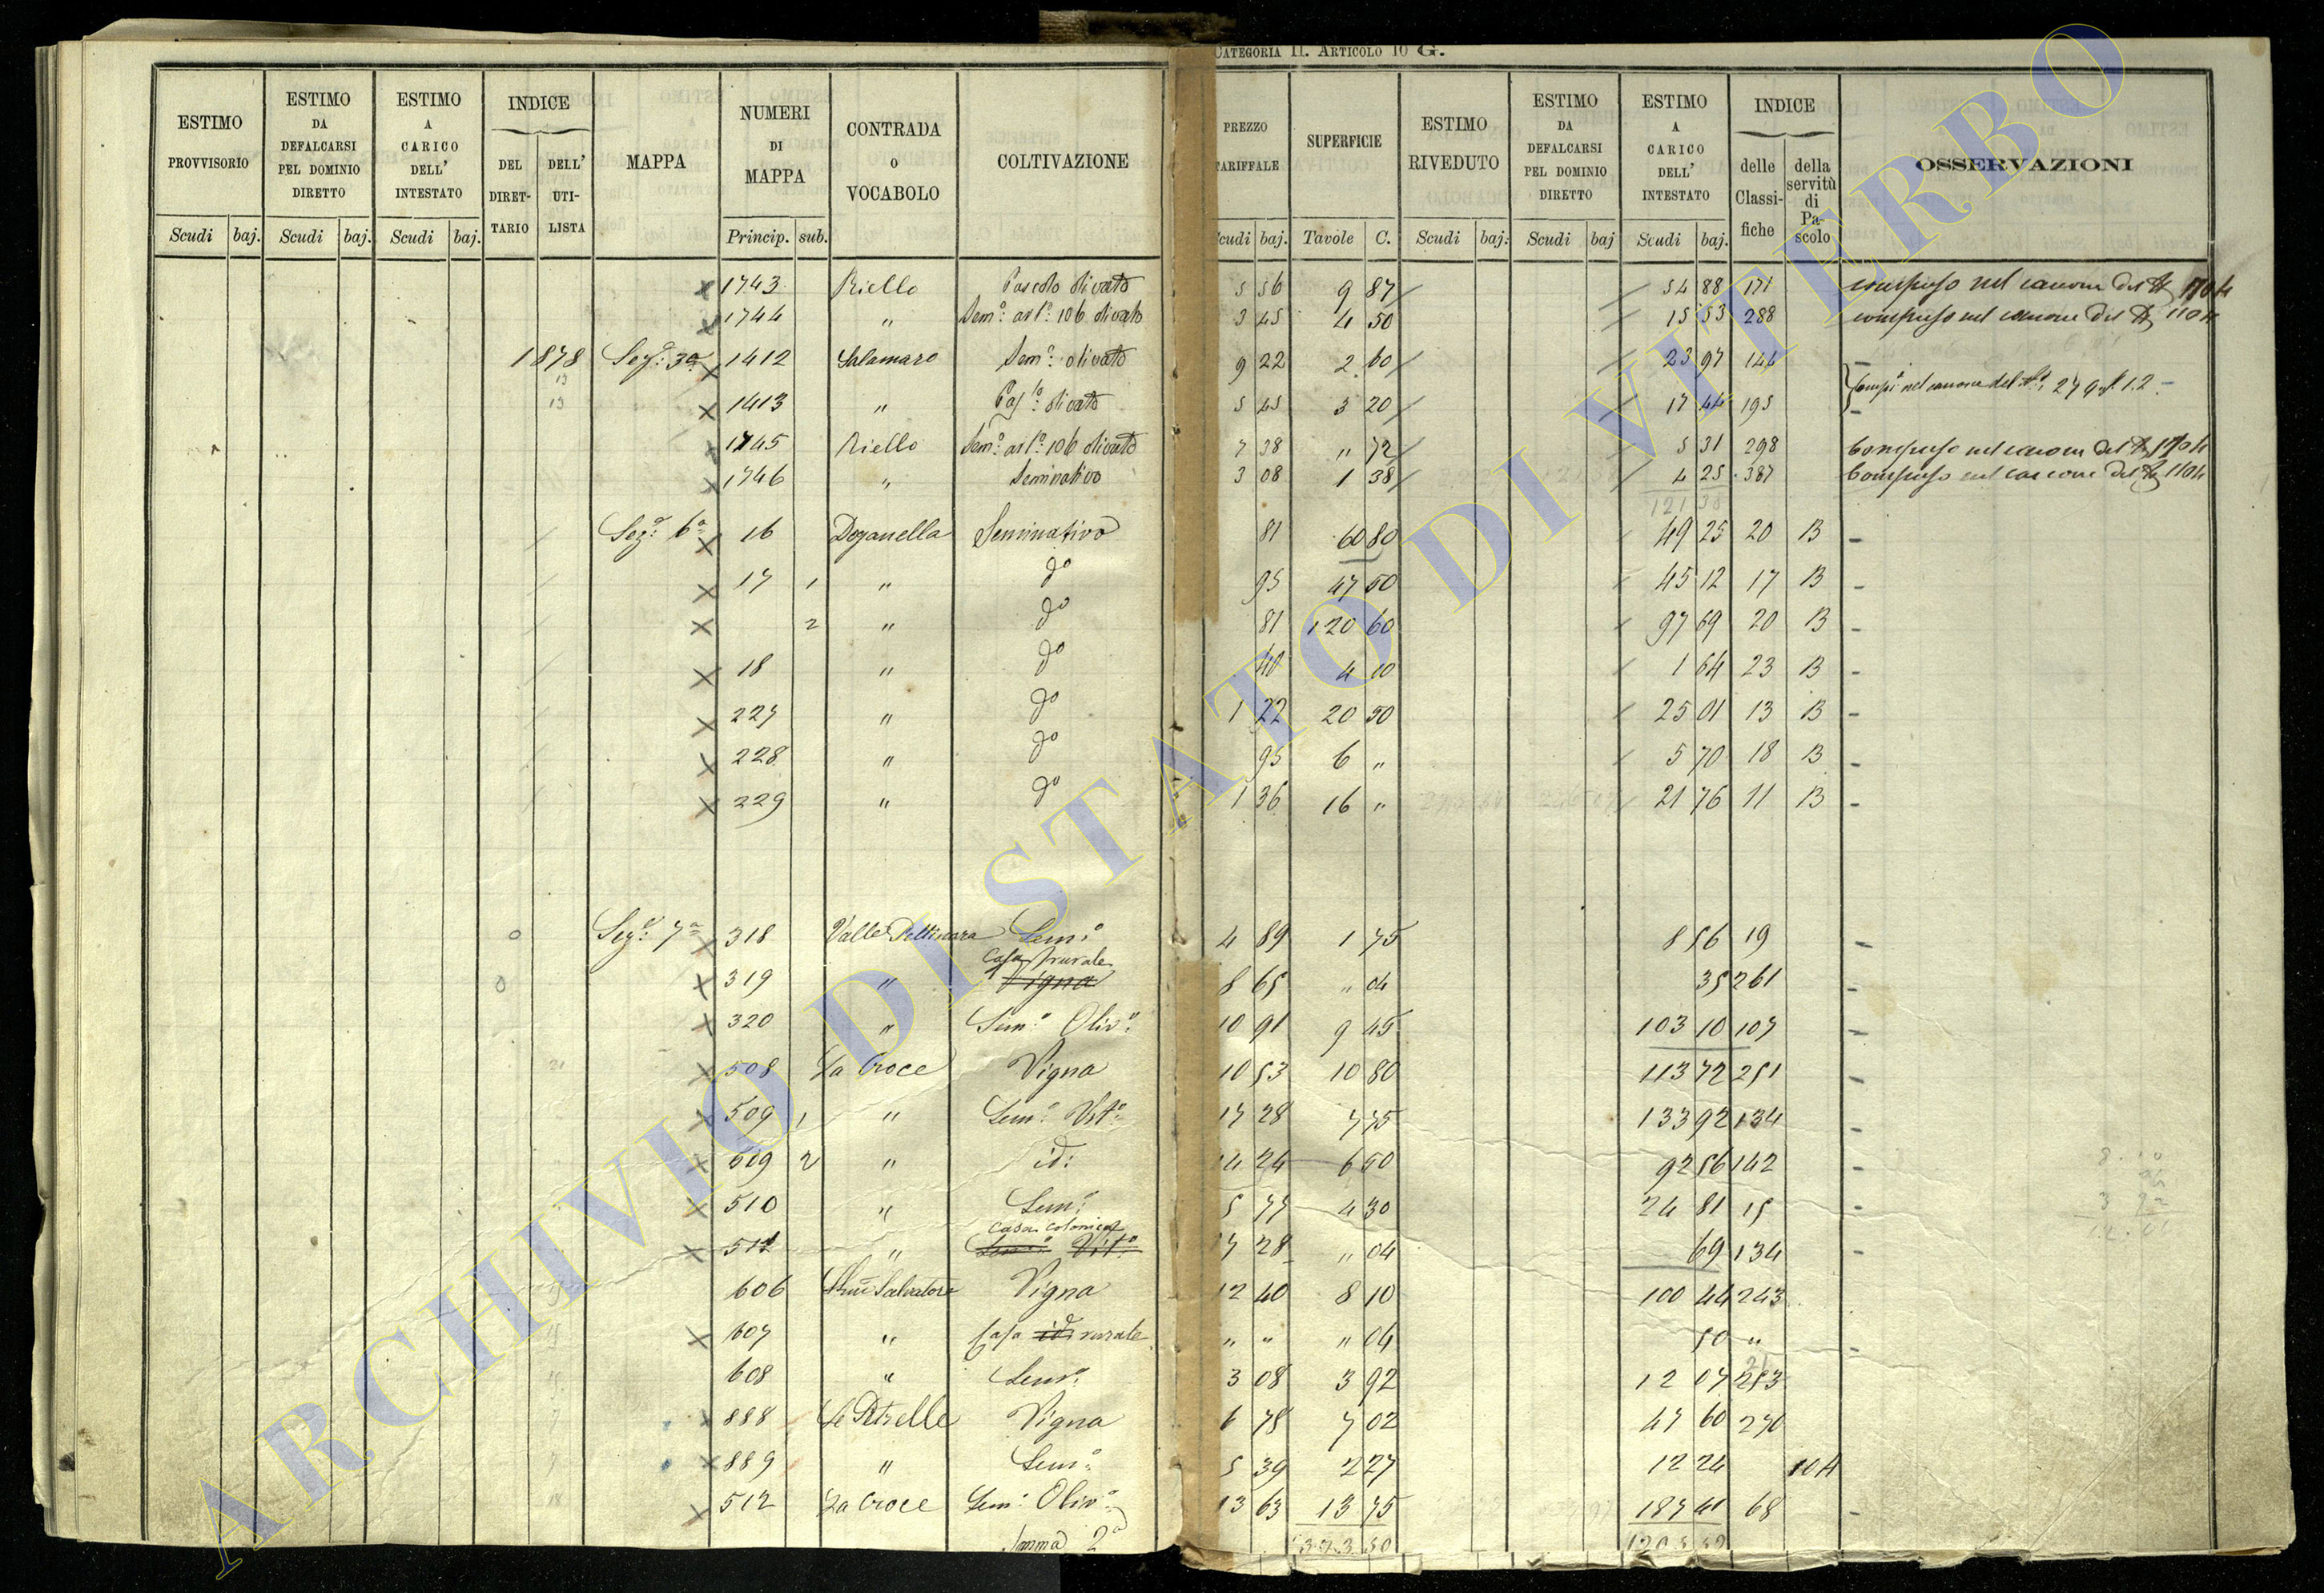 CATEGORIA II. ARTICOLO 10 G.
ESTIMO PROVVISORIO | ESTIMO DA DEFALCARSI PEL DOMINIO DIRETTO | ESTIMO A CARICO DELL' INTESTATO | INDICE | MAPPA | NUMERI DI MAPPA | CONTRADA O VOCABOLO | COLTIVAZIONE | PREZZO TARIFFALE | SUPERFICIE | ESTIMO RIVEDUTO | ESTIMO DA DEFALCARSI PEL DOMINIO DIRETTO | ESTIMO A CARICO DELL' INTESTATO | INDICE | OSSERVAZIONI
DEL DIRET-TARIO | DELL' UTI-LISTA | delle Classi-fiche | della servitù di Pa-scolo
Scudi | baj. | Scudi | baj. | Scudi | baj. | Princip. | sub. | Scudi | baj. | Tavole | C. | Scudi | baj. | Scudi | baj | Scudi | baj.
x 1743 Riello Pascolo olivato 5 56 9 87 54 88 171 compreso nel canone del
x 1744 " Sem.º 106 olivato 3 45 4 50 15 53 288 compreso nel canone del
1878 Sez.e 3a x 1412 Salamaro Sem.º olivato 9 22 2 60 23 97 144
13 x 1413 " Pas.lo olivato 5 45 3 20 17 44 195 Comp.º nel canone del
x 1745 Riello Sem.º 106 olivato 7 38 " 72 5 31 298 Compreso nel canone del
x 1746 " Seminativo 3 08 1 38 4 25 387 Compreso nel canone del
Sez.e 6a x 16 Doganella Seminativo 81 60 80 49 25 20 B -
x 17 1 " do 95 47 50 45 12 17 B -
x 2 " do 81 120 60 97 69 20 B -
x 18 " do 40 4 10 1 64 23 B -
x 227 " do 1 22 20 50 25 01 13 B -
x 228 " do 95 6 " 5 70 18 B -
x 229 " do 1 36 16 " 21 76 11 B -
Sez.e 7a x 318 Valle Sem.º 4 89 1 75 8 56 19 -
x 319 " Casa rurale Vigna 8 65 " 04 35 261 -
x 320 " Sem.º Oliv.º 10 91 9 45 103 10 107 -
21 x 508 La Croce Vigna 10 53 10 80 113 72 251 -
x 509 1 " Sem.º Vit.º 17 28 7 75 133 92 134 -
x 509 2 " id: 14 24 6 50 92 56 142 -
x 510 " Sem.º 5 77 4 30 24 81 15 -
x 511 " Casa colonica Sem.º Vit.º 17 28 " 04 69 134 -
606 Salvatore Vigna 12 40 8 10 100 44 243 -
x 607 " Casa id: rurale " " " 04 50 " -
608 " Sem.º 3 08 3 92 12 07 253
x 888 Le Petrelle Vigna 6 78 7 02 47 60 270
x 889 " Sem.º 5 39 2 27 12 24 10A
x 512 La Croce Sem.º Oliv.º 13 63 13 75 187 41 68 -
Somma 2a 393 50
ARCHIVIO DI STATO DI VITERBO